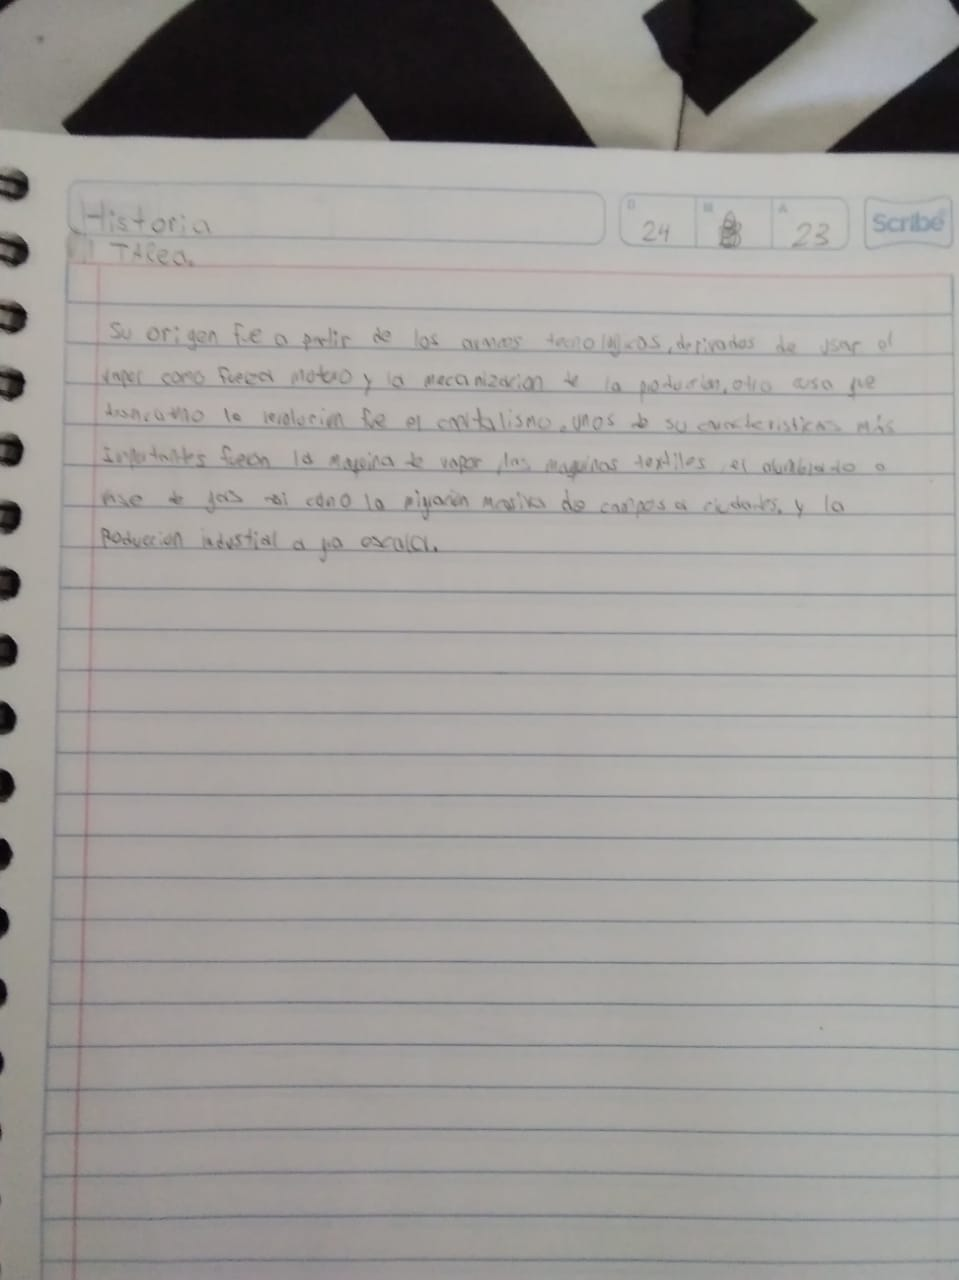 Historia
D 24 M A 23
Scribe
TArea.
Su origen fue a partir de los tecnologicos, derivados de usar el
vapor como fuerza y la mecanización de la produccion, otra que
la revolucion fue el capitalismo, unos de su caracteristicas más
Importantes fueron la maquina de vapor, las maquinas textiles, el alumbrado a
de gas asi como la migración masiva de campos a ciudades, y la
Produccion industrial a escala.